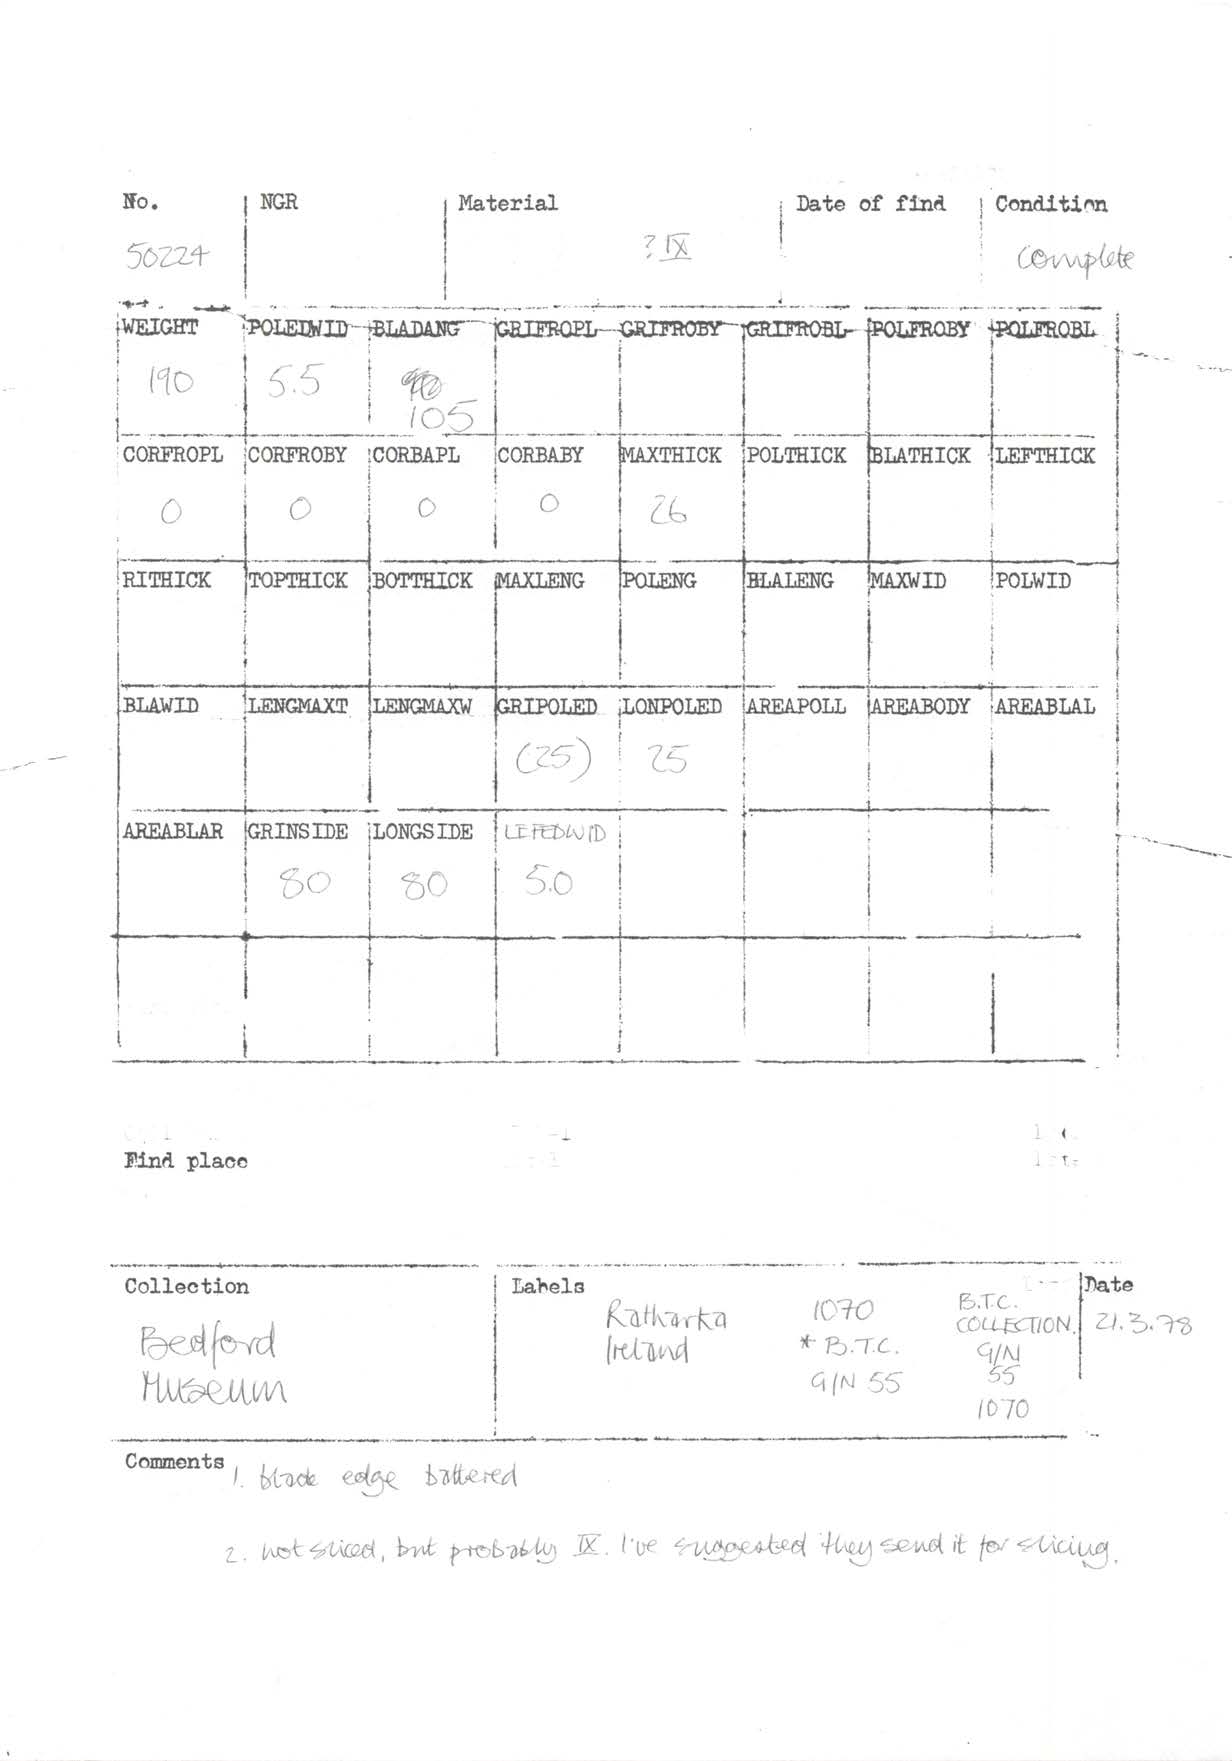 No. NGR Material Date of find Condition
50224 ? IX complete
WEIGHT POLEDWID BLADANG GRIFROPL GRIFROBY GRIFROBL POLFROBY POLFROBL
190 5.5
105
CORFROPL CORFROBY CORBAPL CORBABY MAXTHICK POLTHICK BLATHICK LEFTHICK
0 0 0 0 26
RITHICK TOPTHICK BOTTHICK MAXLENG POLENG BLALENG MAXWID POLWID
BLAWID LENGMAXT LENGMAXW GRIPOLED LONPOLED AREAPOLL AREABODY AREABLAL
(25) 25
AREABLAR GRINSIDE LONGSIDE LEFEDWID
80 80 5.0
Find place
Collection
Bedford
Museum
Labels
Ratharka
Ireland
1070
* B.T.C.
G/N 55
B.T.C.
COLLECTION.
G/N
55
1070
Date
21.3.78
Comments
1. blade edge battered
2. not sliced, but probably IX. I've suggested they send it for slicing.